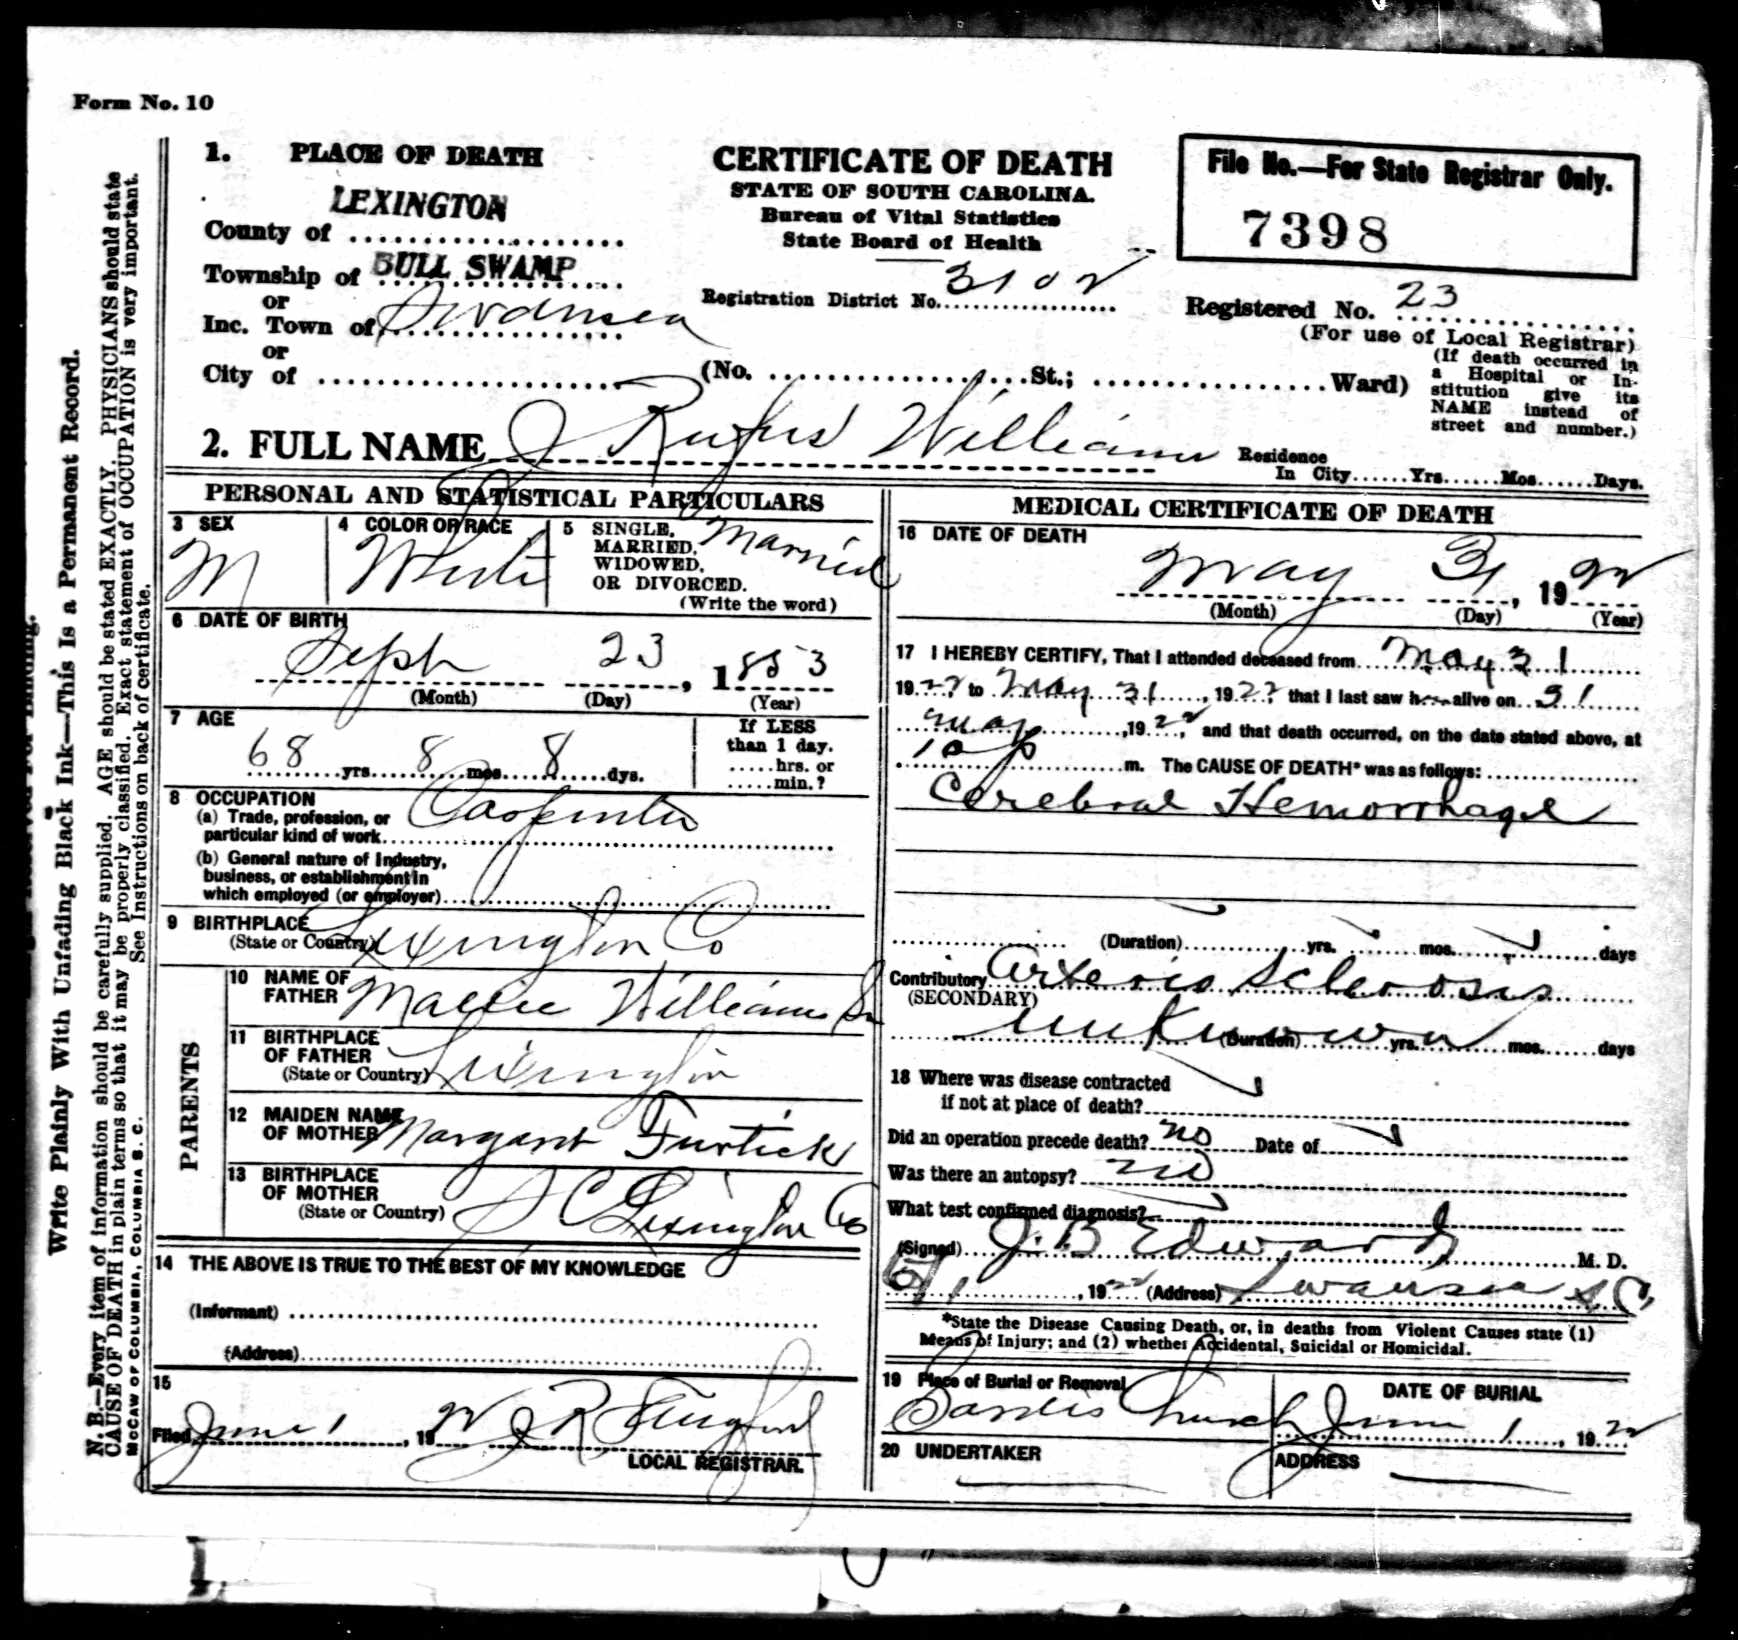 Form No. 10
1. PLACE OF DEATH
LEXINGTON
County of
Township of BULL SWAMP
or
Inc. Town of Swansea
or
City of
CERTIFICATE OF DEATH
STATE OF SOUTH CAROLINA.
Bureau of Vital Statistics
State Board of Health
Registration District No. 3102
(No. St.; Ward)
File No.—For State Registrar Only.
7398
Registered No. 23
(For use of Local Registrar)
(If death occurred in
a Hospital or In-
stitution give its
NAME instead of
street and number.)
2. FULL NAME J Rufus Williams
Residence
In City Yrs. Mos. Days.
PERSONAL AND STATISTICAL PARTICULARS
3 SEX
M
4 COLOR OR RACE
White
5 SINGLE,
MARRIED,
WIDOWED,
OR DIVORCED.
(Write the word)
Married
6 DATE OF BIRTH
Sept 23, 1853
(Month) (Day) (Year)
7 AGE
68 yrs. 8 mos. 8 dys.
If LESS
than 1 day.
hrs. or
min.?
8 OCCUPATION
(a) Trade, profession, or
particular kind of work Carpenter
(b) General nature of Industry,
business, or establishment in
which employed (or employer)
9 BIRTHPLACE
(State or Country) Lexington Co
PARENTS
10 NAME OF
FATHER Williams Sr
11 BIRTHPLACE
OF FATHER
(State or Country) Lexington
12 MAIDEN NAME
OF MOTHER Margaret Furtick
13 BIRTHPLACE
OF MOTHER
(State or Country) S C Lexington Co
14 THE ABOVE IS TRUE TO THE BEST OF MY KNOWLEDGE
(Informant)
(Address)
15
Filed June 1, 1922 J R
LOCAL REGISTRAR.
MEDICAL CERTIFICATE OF DEATH
16 DATE OF DEATH
May 31, 1922
(Month) (Day) (Year)
17 I HEREBY CERTIFY, That I attended deceased from May 31
1922 to May 31, 1922, that I last saw h alive on 31
May, 1922, and that death occurred, on the date stated above, at
10 p m. The CAUSE OF DEATH* was as follows:
Cerebral Hemorrhage
(Duration) yrs. mos. days
Contributory Arterio Sclerosis
(SECONDARY)
unknown
(Duration) yrs. mos. days
18 Where was disease contracted
if not at place of death?
Did an operation precede death? no Date of
Was there an autopsy? no
What test confirmed diagnosis?
(Signed) J. B Edwards M. D.
6/1, 1922 (Address) Swansea S. C.
*State the Disease Causing Death, or, in deaths from Violent Causes state (1)
Means of Injury; and (2) whether Accidental, Suicidal or Homicidal.
19 Place of Burial or Removal
Sardis Church
DATE OF BURIAL
June 1, 1922
20 UNDERTAKER
ADDRESS
Write Plainly With Unfading Black Ink—This Is a Permanent Record.
N. B.—Every item of information should be carefully supplied. AGE should be stated EXACTLY. PHYSICIANS should state
CAUSE OF DEATH in plain terms so that it may be properly classified. Exact statement of OCCUPATION is very important.
See Instructions on back of certificate.
McCAW OF COLUMBIA, COLUMBIA S. C.